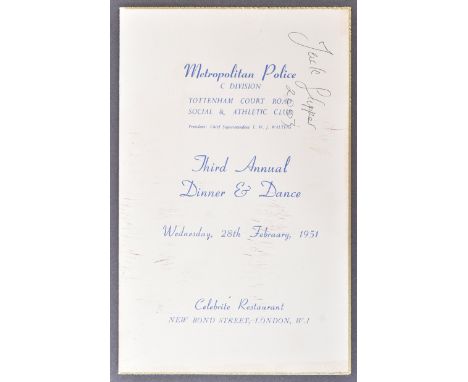 Jack Slipper
Metropolitan Police
C DIVISION
TOTTENHAM COURT ROAD
SOCIAL & ATHLETIC CLUB
President: Chief Superintendent T. W. J. WALTERS
Third Annual
Dinner & Dance
Wednesday, 28th February, 1951
Celebrite Restaurant
NEW BOND STREET, LONDON, W.1